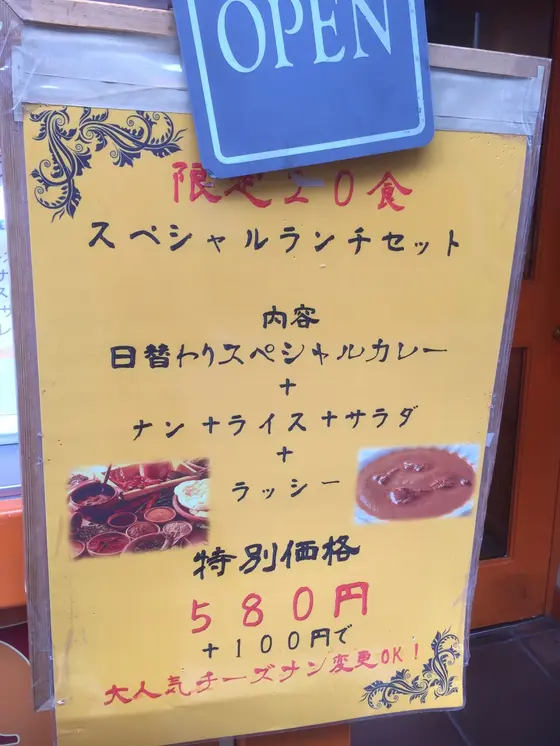 OPEN
限定20食
スペシャルランチセット
内容
日替わりスペシャルカレー
+
ナン+ライス+サラダ
+
ラッシー
特別価格
580円
+100円で
大人気チーズナン変更OK!